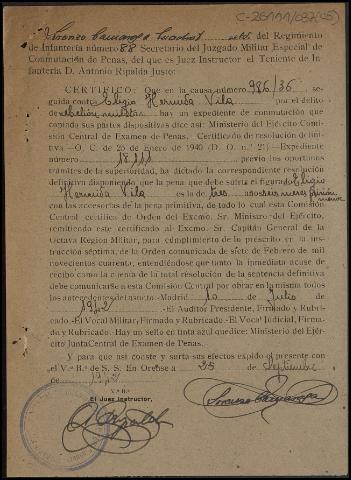 C-26111/032(05)
Lorenzo sold. del Regimiento
de Infantería número 88 Secretario del Juzgado Militar Especial de
Conmutación de Penas, del que es Juez Instructor el Teniente de In-
fantería D. Antonio Ripalda Justo:
CERTIFICO: Que en la causa número 986/36 se-
guida contra Eligio Hermida Vila por el delito
de rebelión militar hay un expediente de conmutación que
copiado sus partes dispositivas dice así: Ministerio del Ejército Comi-
sión Central de Examen de Penas. Certificación de resolución defini-
tiva—O. C. de 25 de Enero de 1940 (D. O. n.º 21)—Expediente
número previo los oportunos
trámites de la superioridad, ha dictado la correspondiente resolución
definitiva disponiendo que la pena que debe sufrir el figurado Eligio
Hermida Vila es la de tres años seis meses prisión
menor
con las accesorias de la pena primitiva, de todo lo cual esta Comisión
Central certifica de Orden del Excmo. Sr. Ministro del Ejército,
remitiendo este certificado al Excmo. Sr. Capitán General de la
Octava Región Militar, para cumplimiento de lo prescrito en la ins-
trucción séptima, de la Orden comunicada de siete de Febrero de mil
novecientos cuarenta, entendiéndose que tanto la inmediato acuse de
recibo como la cuenta de la total resolución de la sentencia definitiva
debe comunicarse a esta Comisión Central por obrar en la misma todos
los antecedentes del asunto-Madrid 10 de Julio de
1942 -El Auditor Presidente, Firmado y Rubri-
cado.-El Vocal Militar, Firmado y Rubricado.-El Vocal Judicial, Firma-
do y Rubricado.-Hay un sello en tinta azul que dice: Ministerio del Ejér-
cito Junta Central de Examen de Penas.
Y para que así conste y surta sus efectos expido el presente con
el V.º B.º de S. S. En Orense a 25 de Septiembre
de 1942
V.º B.º
El Juez Instructor,
A. Ripalda